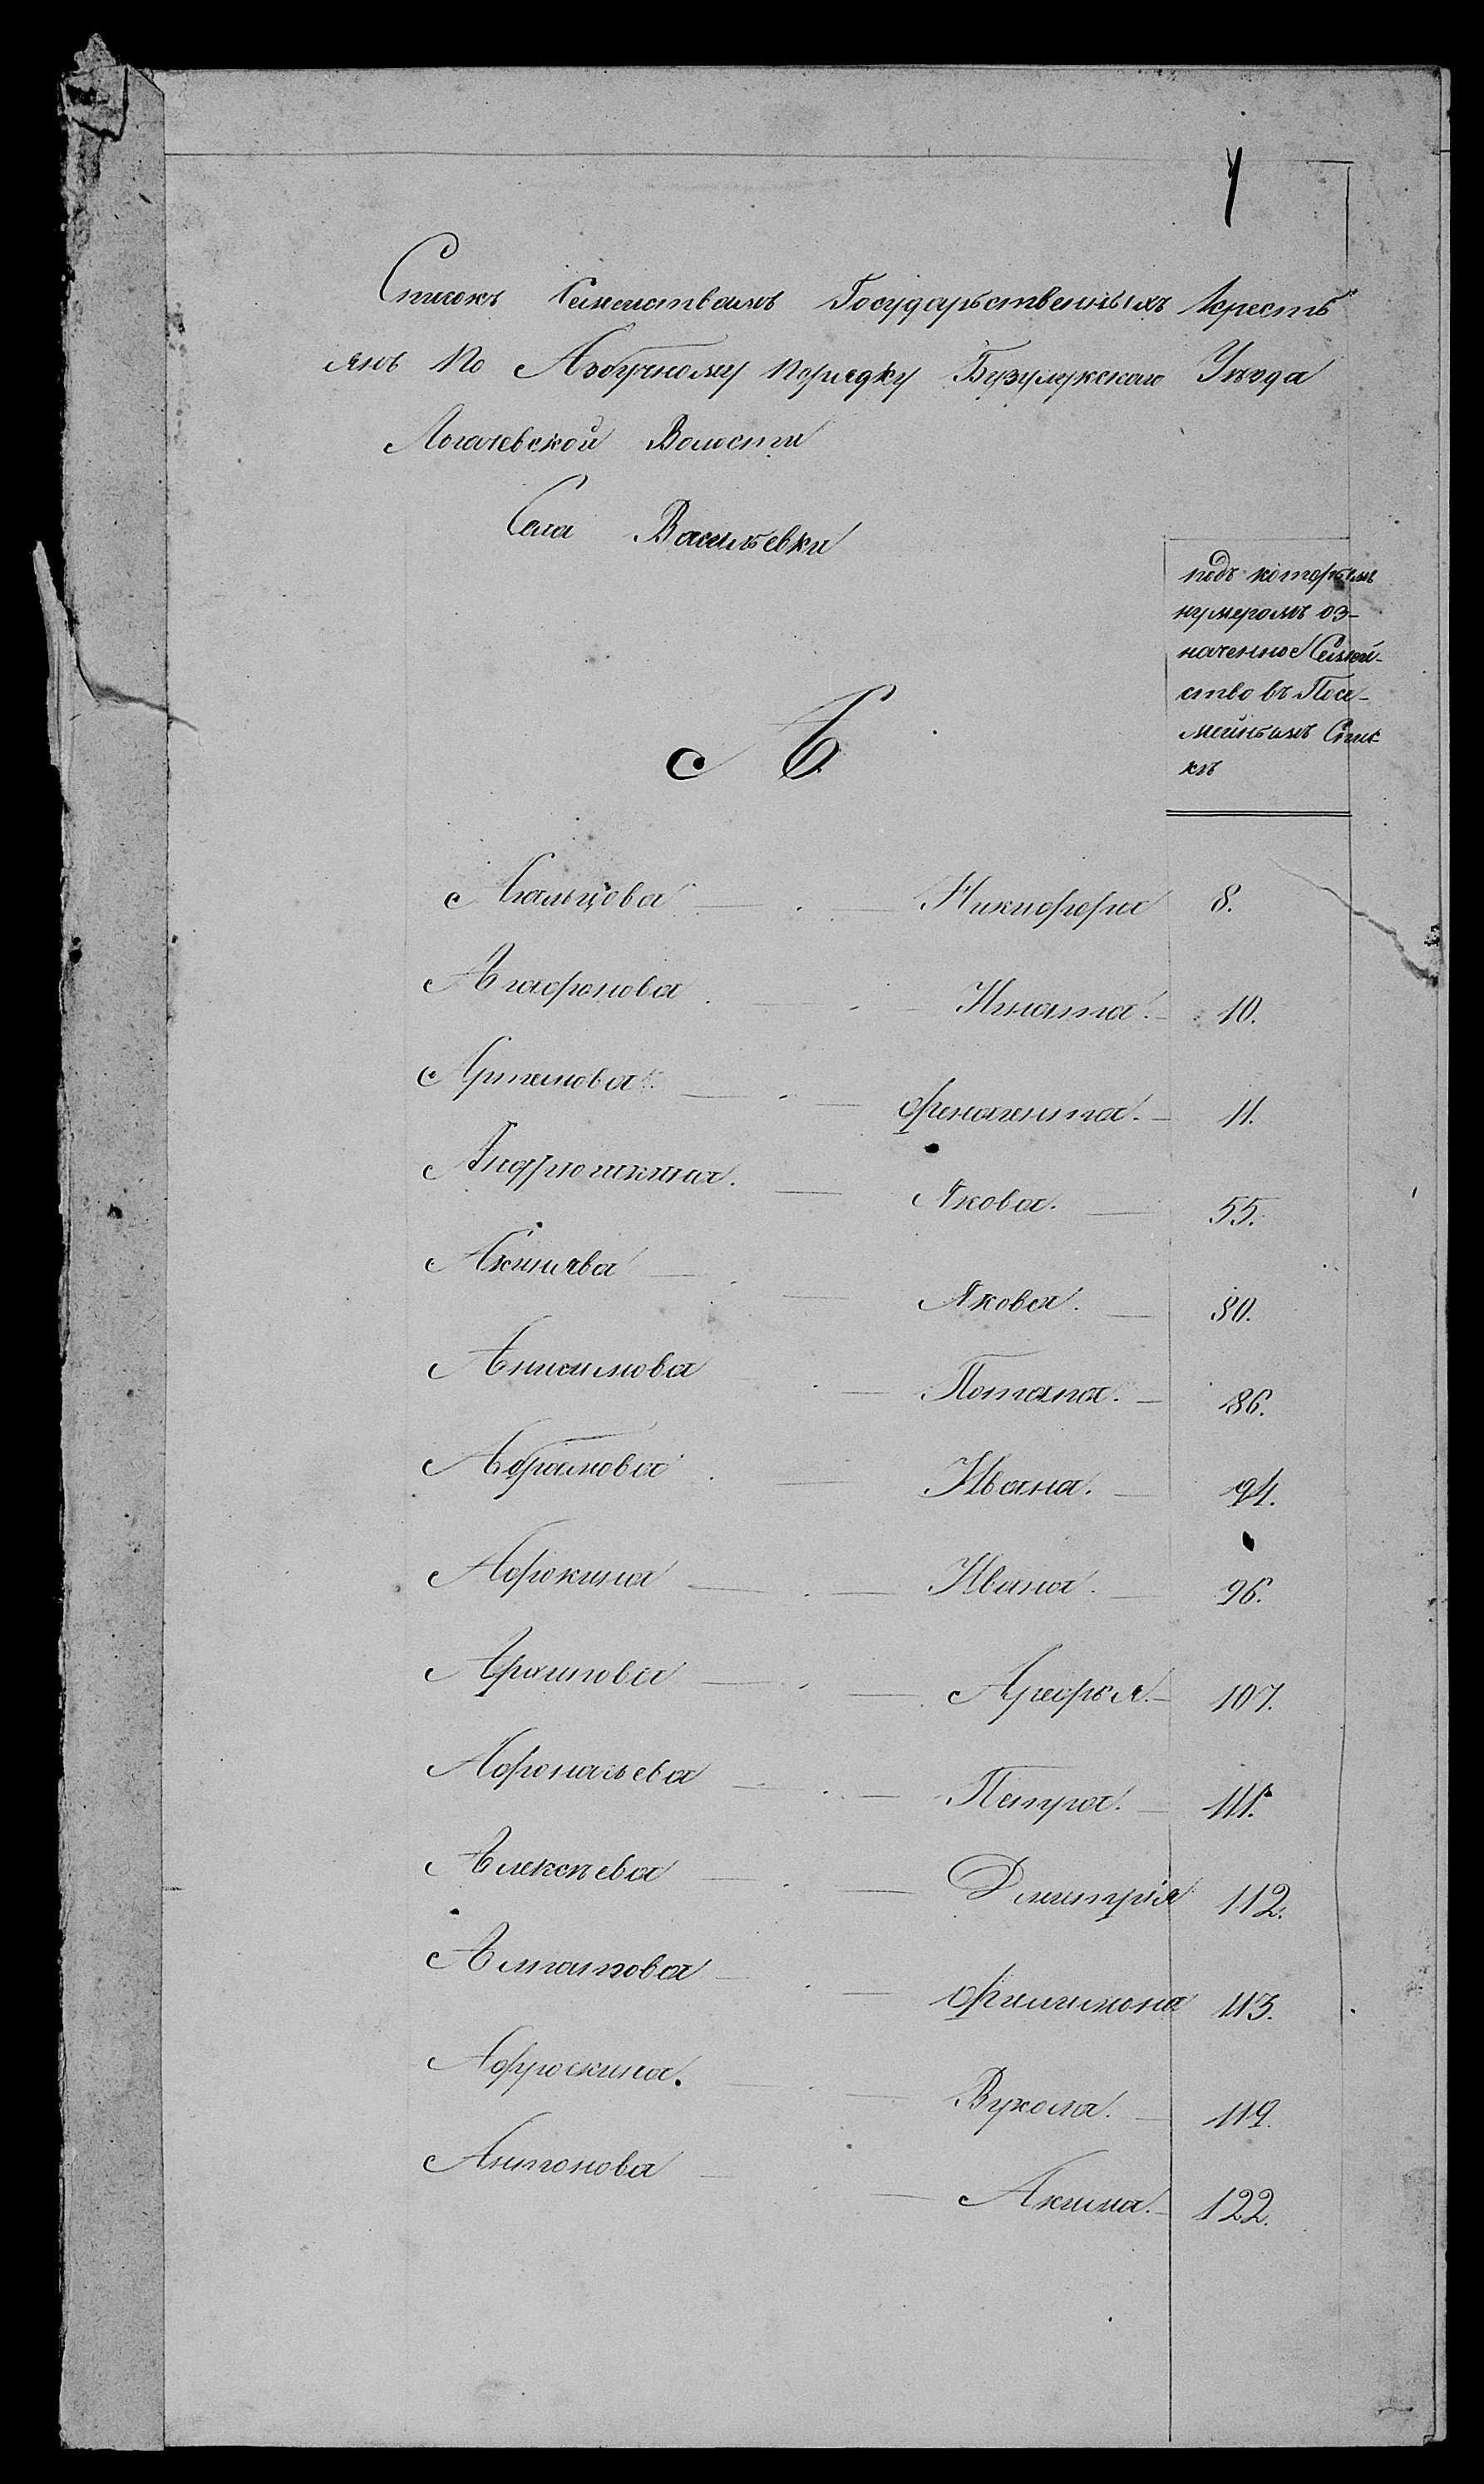 Списокъ Семействамъ Государственныхъ Кресть
янъ По Азбучному порядку Бузулукскаго Уѣзда
Логачевской Волости
Села Васильевки
подъ которымъ
нумеромъ оз-
наченное Семей-
ство въ Посе-
мейнымъ Спис-
кѣ
А
Никифора 8.
Агафонова Игната. 10.
Артемова 11.
Андрюшкина. Якова. 55.
Акинѣва Якова. 80.
Анисимова Потапа. 86.
Абрамова Ивана. 94.
Афокина Ивана. 96.
Архипова Арефья. 107.
Афонасьева Петра. 111.
Алексѣева Дмитрія 112.
Филимона 113.
Афроскина. Вукола. 119.
Антонова Акима. 122.